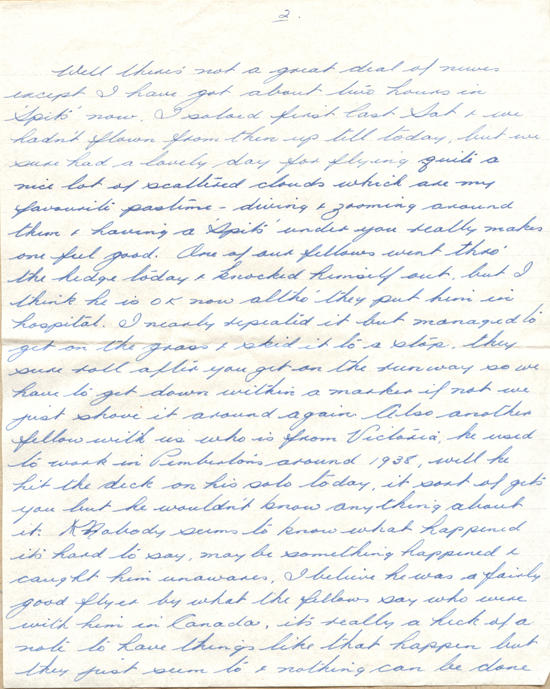 2.
Well there's not a great deal of news
except I have got about two hours in
'Spits' now. I soloed first last Sat & we
hadn't flown from then up till today, but we
sure had a lovely day for flying quite a
nice lot of scattered clouds which are my
favourite pastime - diving & zooming around
them & having a 'Spit' under you really makes
one feel good. One of our fellows went thro'
the hedge today & knocked himself out but I
think he is OK now altho' they put him in
hospital. I nearly repeated it but managed to
get on the grass & skid it to a stop. they
sure roll after you get on the runway so we
have to get down within a marker if not we
just shove it around again. Also another
fellow with us who is from Victoria, he used
to work in Pemberton's around 1938, well he
hit the deck on his solo today, it sort of gets
you but he wouldn't know anything about
it. Nobody seems to know what happened
it's hard to say, maybe something happened &
caught him unawares, I believe he was a fairly
good flyer by what the fellows say who were
with him in Canada, it's really a heck of a
note to have things like that happen but
they just seem to & nothing can be done